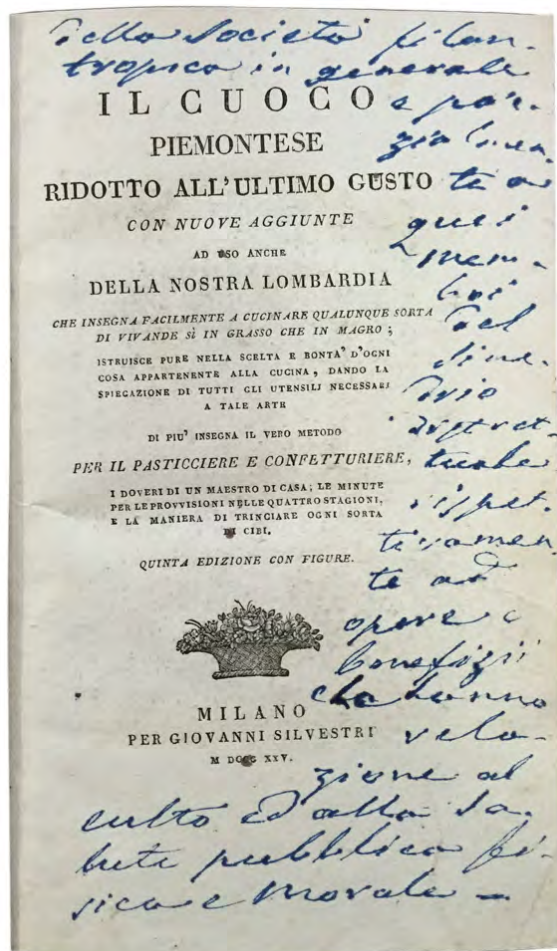 della Società filan-
tropica in generale
IL CUOCO
PIEMONTESE
RIDOTTO ALL'ULTIMO GUSTO
CON NUOVE AGGIUNTE
AD USO ANCHE
DELLA NOSTRA LOMBARDIA
CHE INSEGNA FACILMENTE A CUCINARE QUALUNQUE SORTA
DI VIVANDE SÌ IN GRASSO CHE IN MAGRO;
ISTRUISCE PURE NELLA SCELTA E BONTA' D'OGNI
COSA APPARTENENTE ALLA CUCINA, DANDO LA
SPIEGAZIONE DI TUTTI GLI UTENSILI NECESSARI
A TALE ARTE
DI PIU' INSEGNA IL VERO METODO
PER IL PASTICCIERE E CONFETTURIERE,
I DOVERI DI UN MAESTRO DI CASA; LE MINUTE
PER LE PROVVISIONI NELLE QUATTRO STAGIONI,
E LA MANIERA DI TRINCIARE OGNI SORTA
DI CIBI.
QUINTA EDIZIONE CON FIGURE.
MILANO
PER GIOVANNI SILVESTRI
M DCCC XXV.
e par-
zialmen-
te a
quei
mem-
bri
del
Sine-
drio
distret-
tuale
rispet-
tivamen-
te ad
opere e
benefizii
che hanno
rela-
zione al
culto ed alla sa-
lute pubblica fi-
sica e morale –